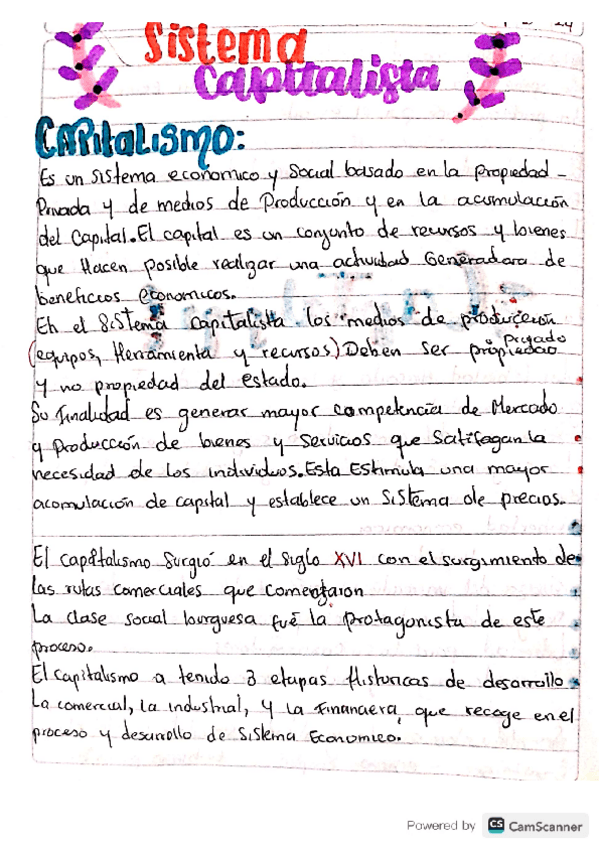 Sistema
Capitalista
CAPitaLISmo:
Es un sistema economico y Social basado en la Propiedad -
Privada y de medios de Producción y en la acumulación
del Capital. El capital es un conjunto de recursos y bienes
que Hacen posible realizar una actividad Generadora de
beneficios economicos.
En el Sistema capitalista los medios de producción
(equipos, Herramienta y recursos) Deben ser propiedad
o Privado
y no propiedad del estado.
Su Finalidad es generar mayor competencia de Mercado
y Producción de bienes y Servicios que Satifagan la
necesidad de los individuos. Esta Estimula una mayor
acomulación de capital y establece un Sistema de precios.
El capitalismo Surgió en el siglo XVI con el surgimiento de
las rutas comerciales que comenzaron
La clase social burguesa fué la protagonista de este
proceso.
El capitalismo a tenido 3 etapas Historicas de desarrollo
La comercial, la Industrial, y la Financiera, que recoge en el
proceso y desarrollo de Sistema Economico.
Powered by CS CamScanner